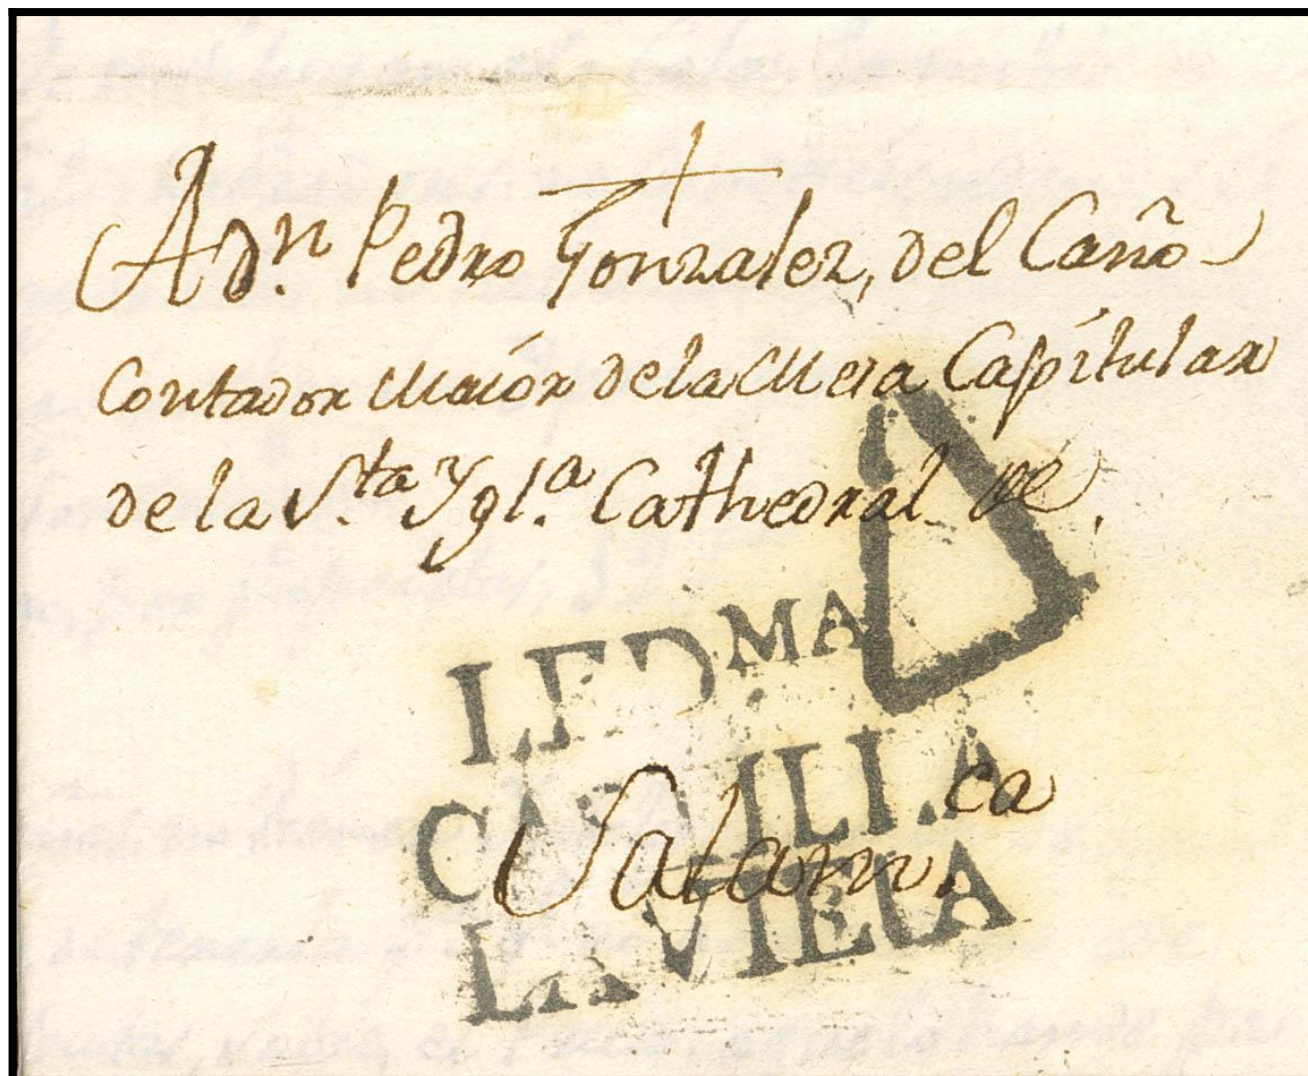 A Dⁿ. Pedro Gonzalez, del Caño
Contador Maior de la Mesa Capitular
de la S.ᵗᵃ Ygl.ᵃ Cathedral de.
LEDᴹᴬ
CASTILLA
LAVIEIA
Salam.ᶜᵃ